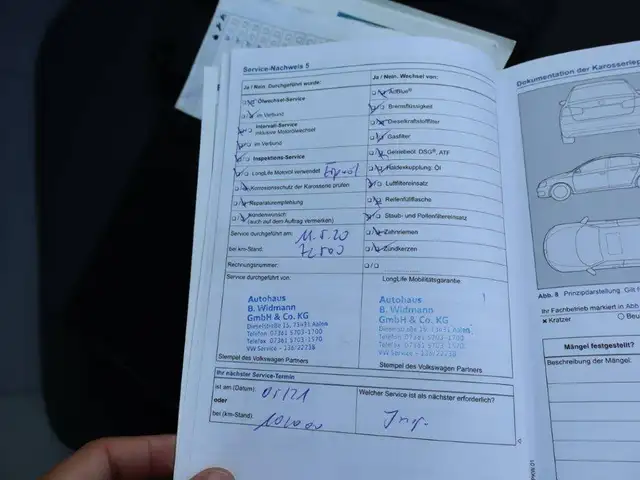 Service-Nachweis 5
Ja / Nein. Durchgeführt wurde:
Ölwechsel-Service
im Verbund
Intervall-Service
inklusive Motorölwechsel
im Verbund
Inspektions-Service
LongLife Motoröl verwendet
Korrosionsschutz der Karosserie prüfen
Reparaturempfehlung
Kundenwunsch
(auch auf dem Auftrag vermerken)
Service durchgeführt am: 11.5.20
bei km-Stand: 72500
Rechnungsnummer:
Service durchgeführt von:
Autohaus
B. Widmann
GmbH & Co. KG
Telefon 07361 5703-1700
Telefax 07361 5703-1570
Stempel des Volkswagen Partners
Ja / Nein. Wechsel von:
AdBlue®
Bremsflüssigkeit
Dieselkraftstofffilter
Gasfilter
Getriebeöl: DSG®, ATF
Haldexkupplung: Öl
Luftfiltereinsatz
Reifenfüllflasche
Staub- und Pollenfiltereinsatz
Zahnriemen
Zündkerzen
LongLife Mobilitätsgarantie
Autohaus
B. Widmann
GmbH & Co. KG
Telefon 07361 5703-1700
Telefax 07361 5703-1570
Stempel des Volkswagen Partners
Ihr nächster Service-Termin
ist am (Datum): 05/21
oder
bei (km-Stand):
Welcher Service ist als nächster erforderlich?
Insp.
Dokumentation der
Abb. 8 Prinzipdarstellung. Gilt
Ihr Fachbetrieb markiert in Abb
× Kratzer
Mängel festgestellt?
Beschreibung der Mängel: